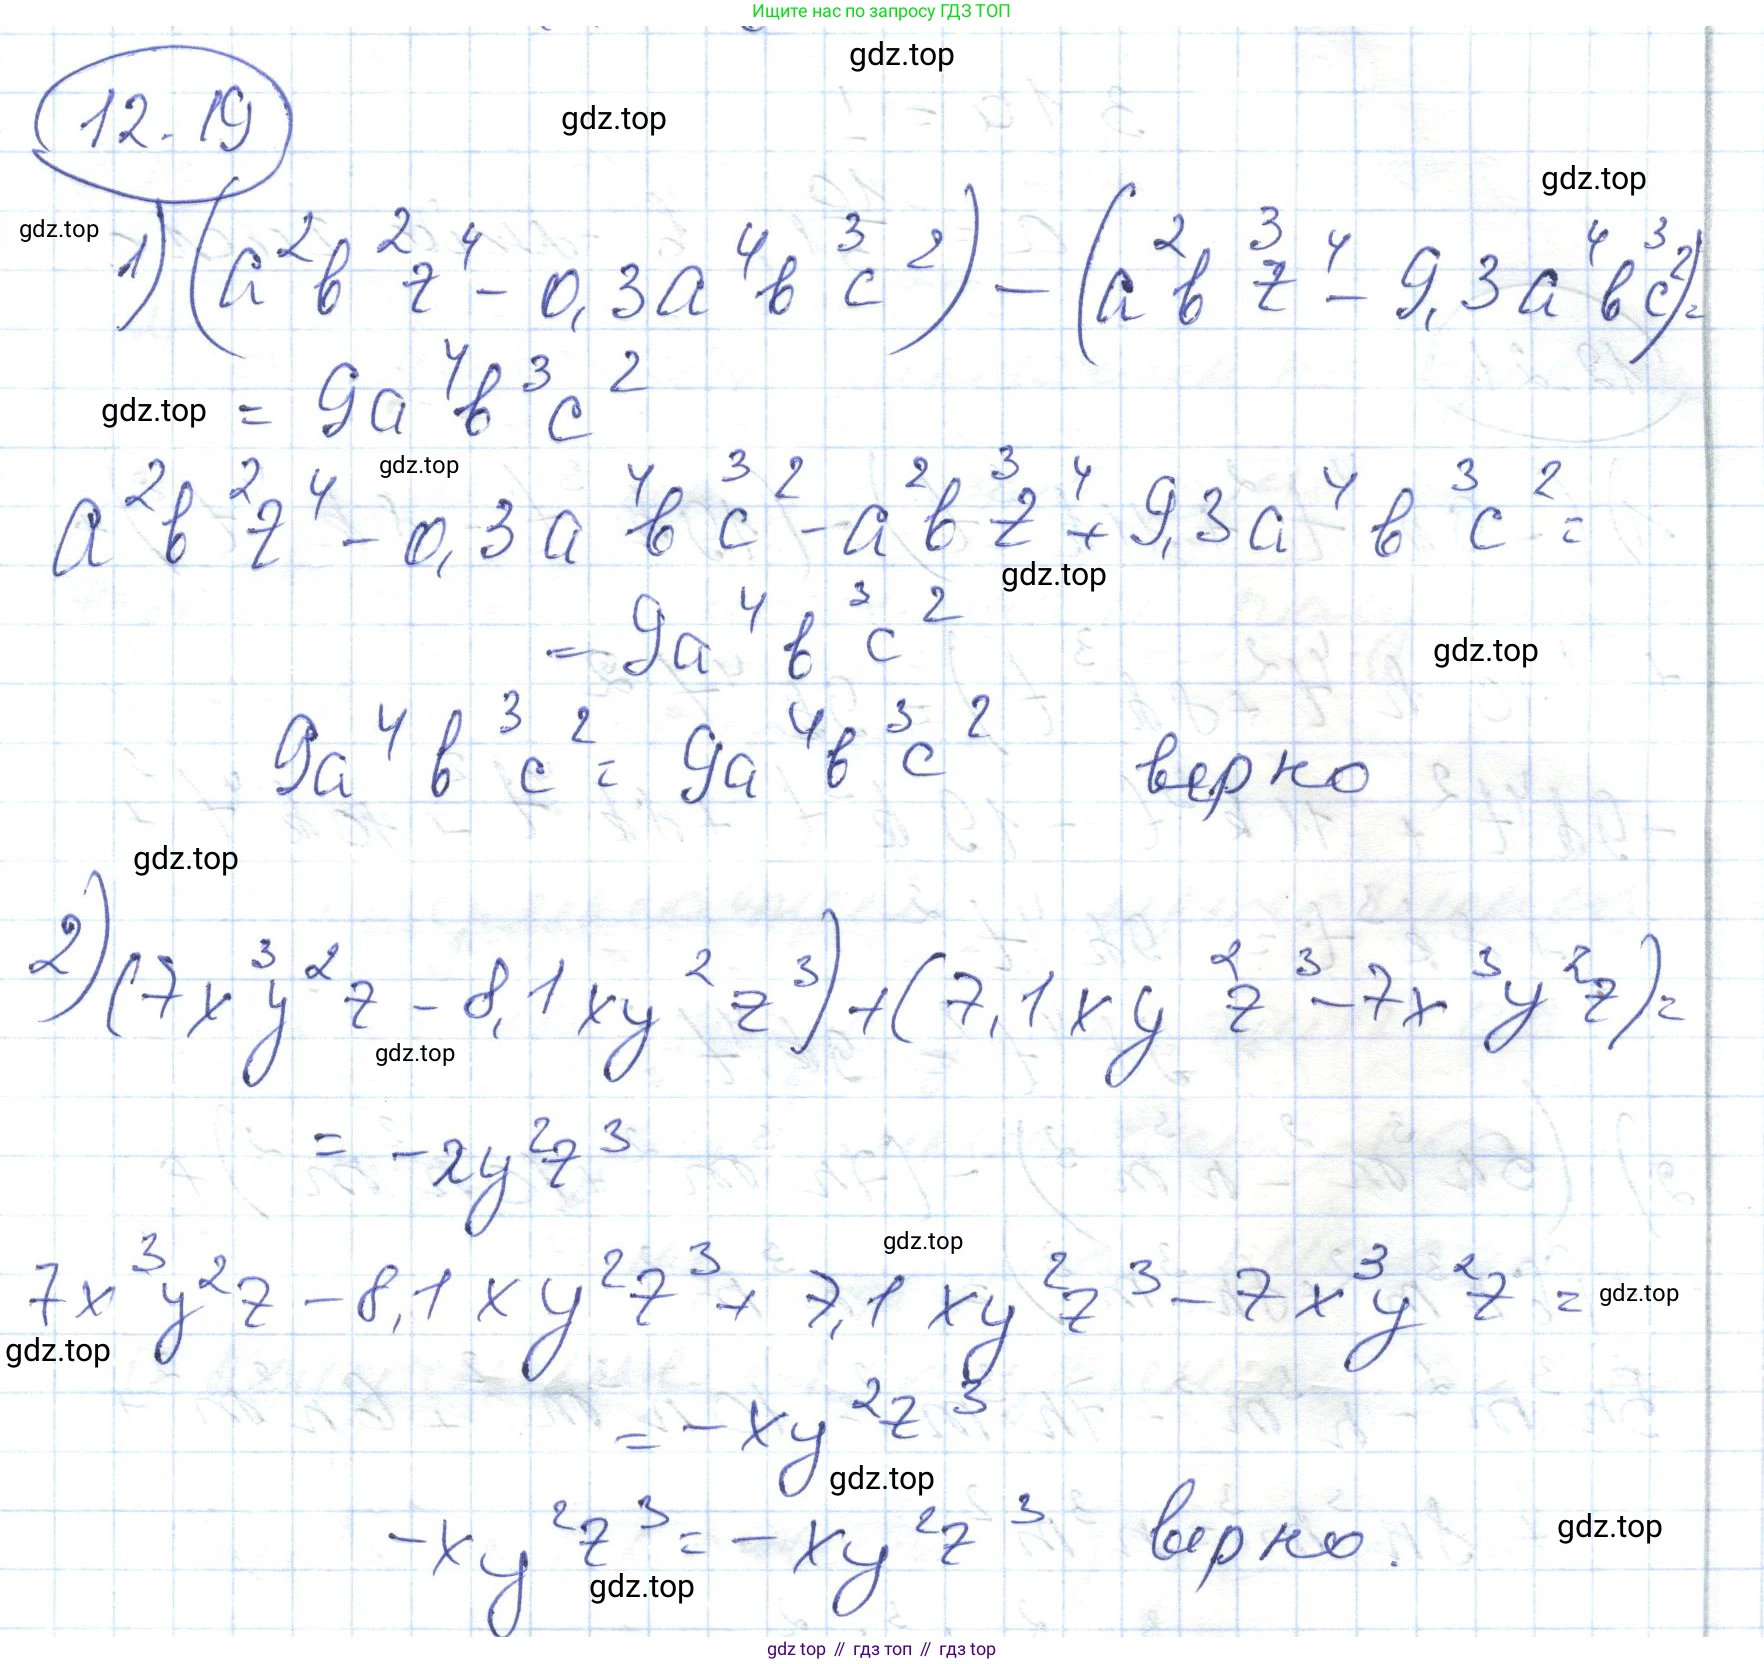 Ищите нас по запросу ГДЗ ТОП
gdz.top
12.19
gdz.top
gdz.top
gdz.top
1) (a²b²z⁴ - 0,3a⁴b³c²) - (a²b z³ ⁴ - 9,3a⁴b³c²) =
gdz.top = 9a⁴b³c²
gdz.top
a²b²z⁴ - 0,3a⁴b³c² - a²b³z⁴ + 9,3a⁴b³c² =
gdz.top
= 9a⁴b³c²
gdz.top
9a⁴b³c² = 9a⁴b³c² верно
gdz.top
2) (7x³y²z - 8,1xy²z³) + (7,1xy²z³ - 7x³y²z) =
gdz.top
= -2y²z³
gdz.top
7x³y²z - 8,1xy²z³ + 7,1xy²z³ - 7x³y²z = gdz.top
gdz.top
= -xy²z³
gdz.top
-xy²z³ = -xy²z³ верно.
gdz.top
gdz.top
gdz top // гдз топ // гдз top